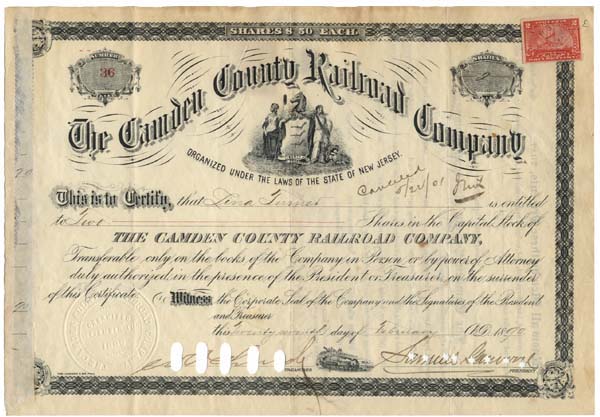 SHARES $ 50 EACH.
NUMBER
36
The Camden County Railroad Company
ORGANIZED UNDER THE LAWS OF THE STATE OF NEW JERSEY.
Cancelled
5/21/01
This is to Certify, that Lena Turner is entitled
to Two Shares in the Capital Stock of
THE CAMDEN COUNTY RAILROAD COMPANY,
Transferable only on the books of the Company in Person or by power of Attorney
duly authorized in the presence of the President or Treasurer on the surrender
of this Certificate. Witness the Corporate Seal of the Company and the Signatures of the President
and Treasurer
this Twenty seventh day of February A.D. 1890
TREASURER
PRESIDENT